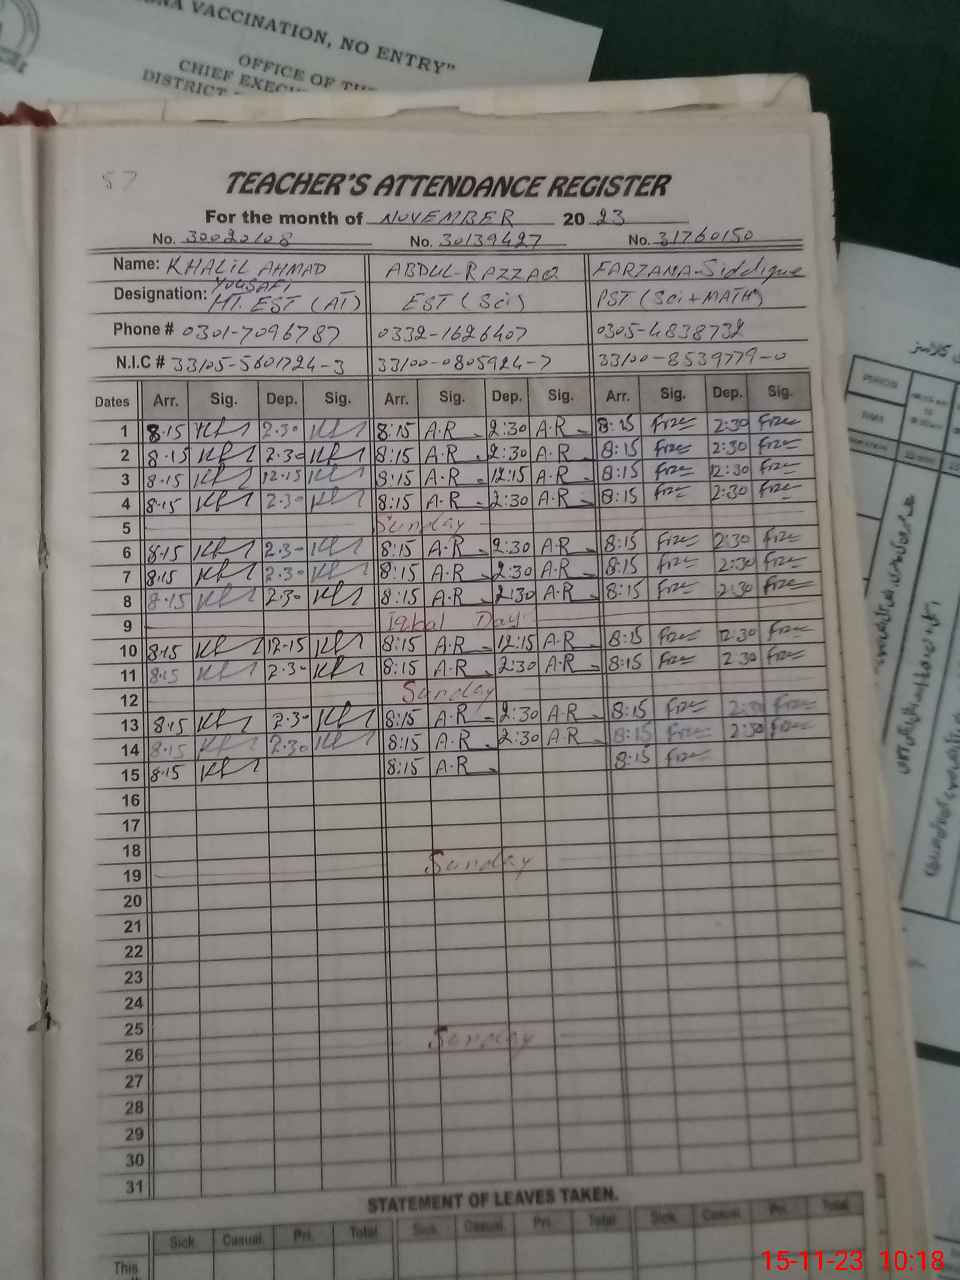 VACCINATION, NO ENTRY"
OFFICE OF THE
CHIEF EXECU
DISTRICT
57
TEACHER'S ATTENDANCE REGISTER
For the month of NOVEMBER 20 23
No. 30020108 No. 30139427 No. 31760150
Name: KHALIL AHMAD YOUSAFI ABDUL-RAZZAQ FARZANA-Siddique
Designation: HT. EST (AT) EST (Sci) PST (Sci+MATH)
Phone # 0301-7096787 0332-1626407 0305-4838732
N.I.C # 33105-5601724-3 33100-0805924-7 33100-8539779-0
Dates Arr. Sig. Dep. Sig. Arr. Sig. Dep. Sig. Arr. Sig. Dep. Sig.
1 8.15 2.30 8:15 A.R 2:30 A.R 8:15 2:30
2 8.15 2.30 8:15 A.R 2:30 A.R 8:15 2:30
3 8.15 12.15 8:15 A.R 12:15 A.R 8:15 12:30
4 8.15 2.30 8:15 A.R 2:30 A.R 8:15 2:30
5 Sunday
6 8.15 2.30 8:15 A.R 2:30 A.R 8:15 2:30
7 8.15 2.30 8:15 A.R 2:30 A.R 8:15 2:30
8 8.15 2.30 8:15 A.R 2:30 A.R 8:15 2:30
9 Iqbal Day
10 8.15 12-15 8:15 A.R 12:15 A.R 8:15 12:30
11 8.15 2.30 8:15 A.R 2:30 A.R 8:15 2 30
12 Sunday
13 8.15 2.30 8:15 A.R 2:30 A.R 8:15 2:30
14 8.15 2.30 8:15 A.R 2:30 A.R 8:15 2:30
15 8.15 8:15 A.R 8:15
16
17
18
19 Sunday
20
21
22
23
24
25
26 Sunday
27
28
29
30
31
STATEMENT OF LEAVES TAKEN.
Sick. Casual. Pri. Total Sick. Casual. Pri. Total Sick. Casual. Pri. Total
This
15-11-23 10:18